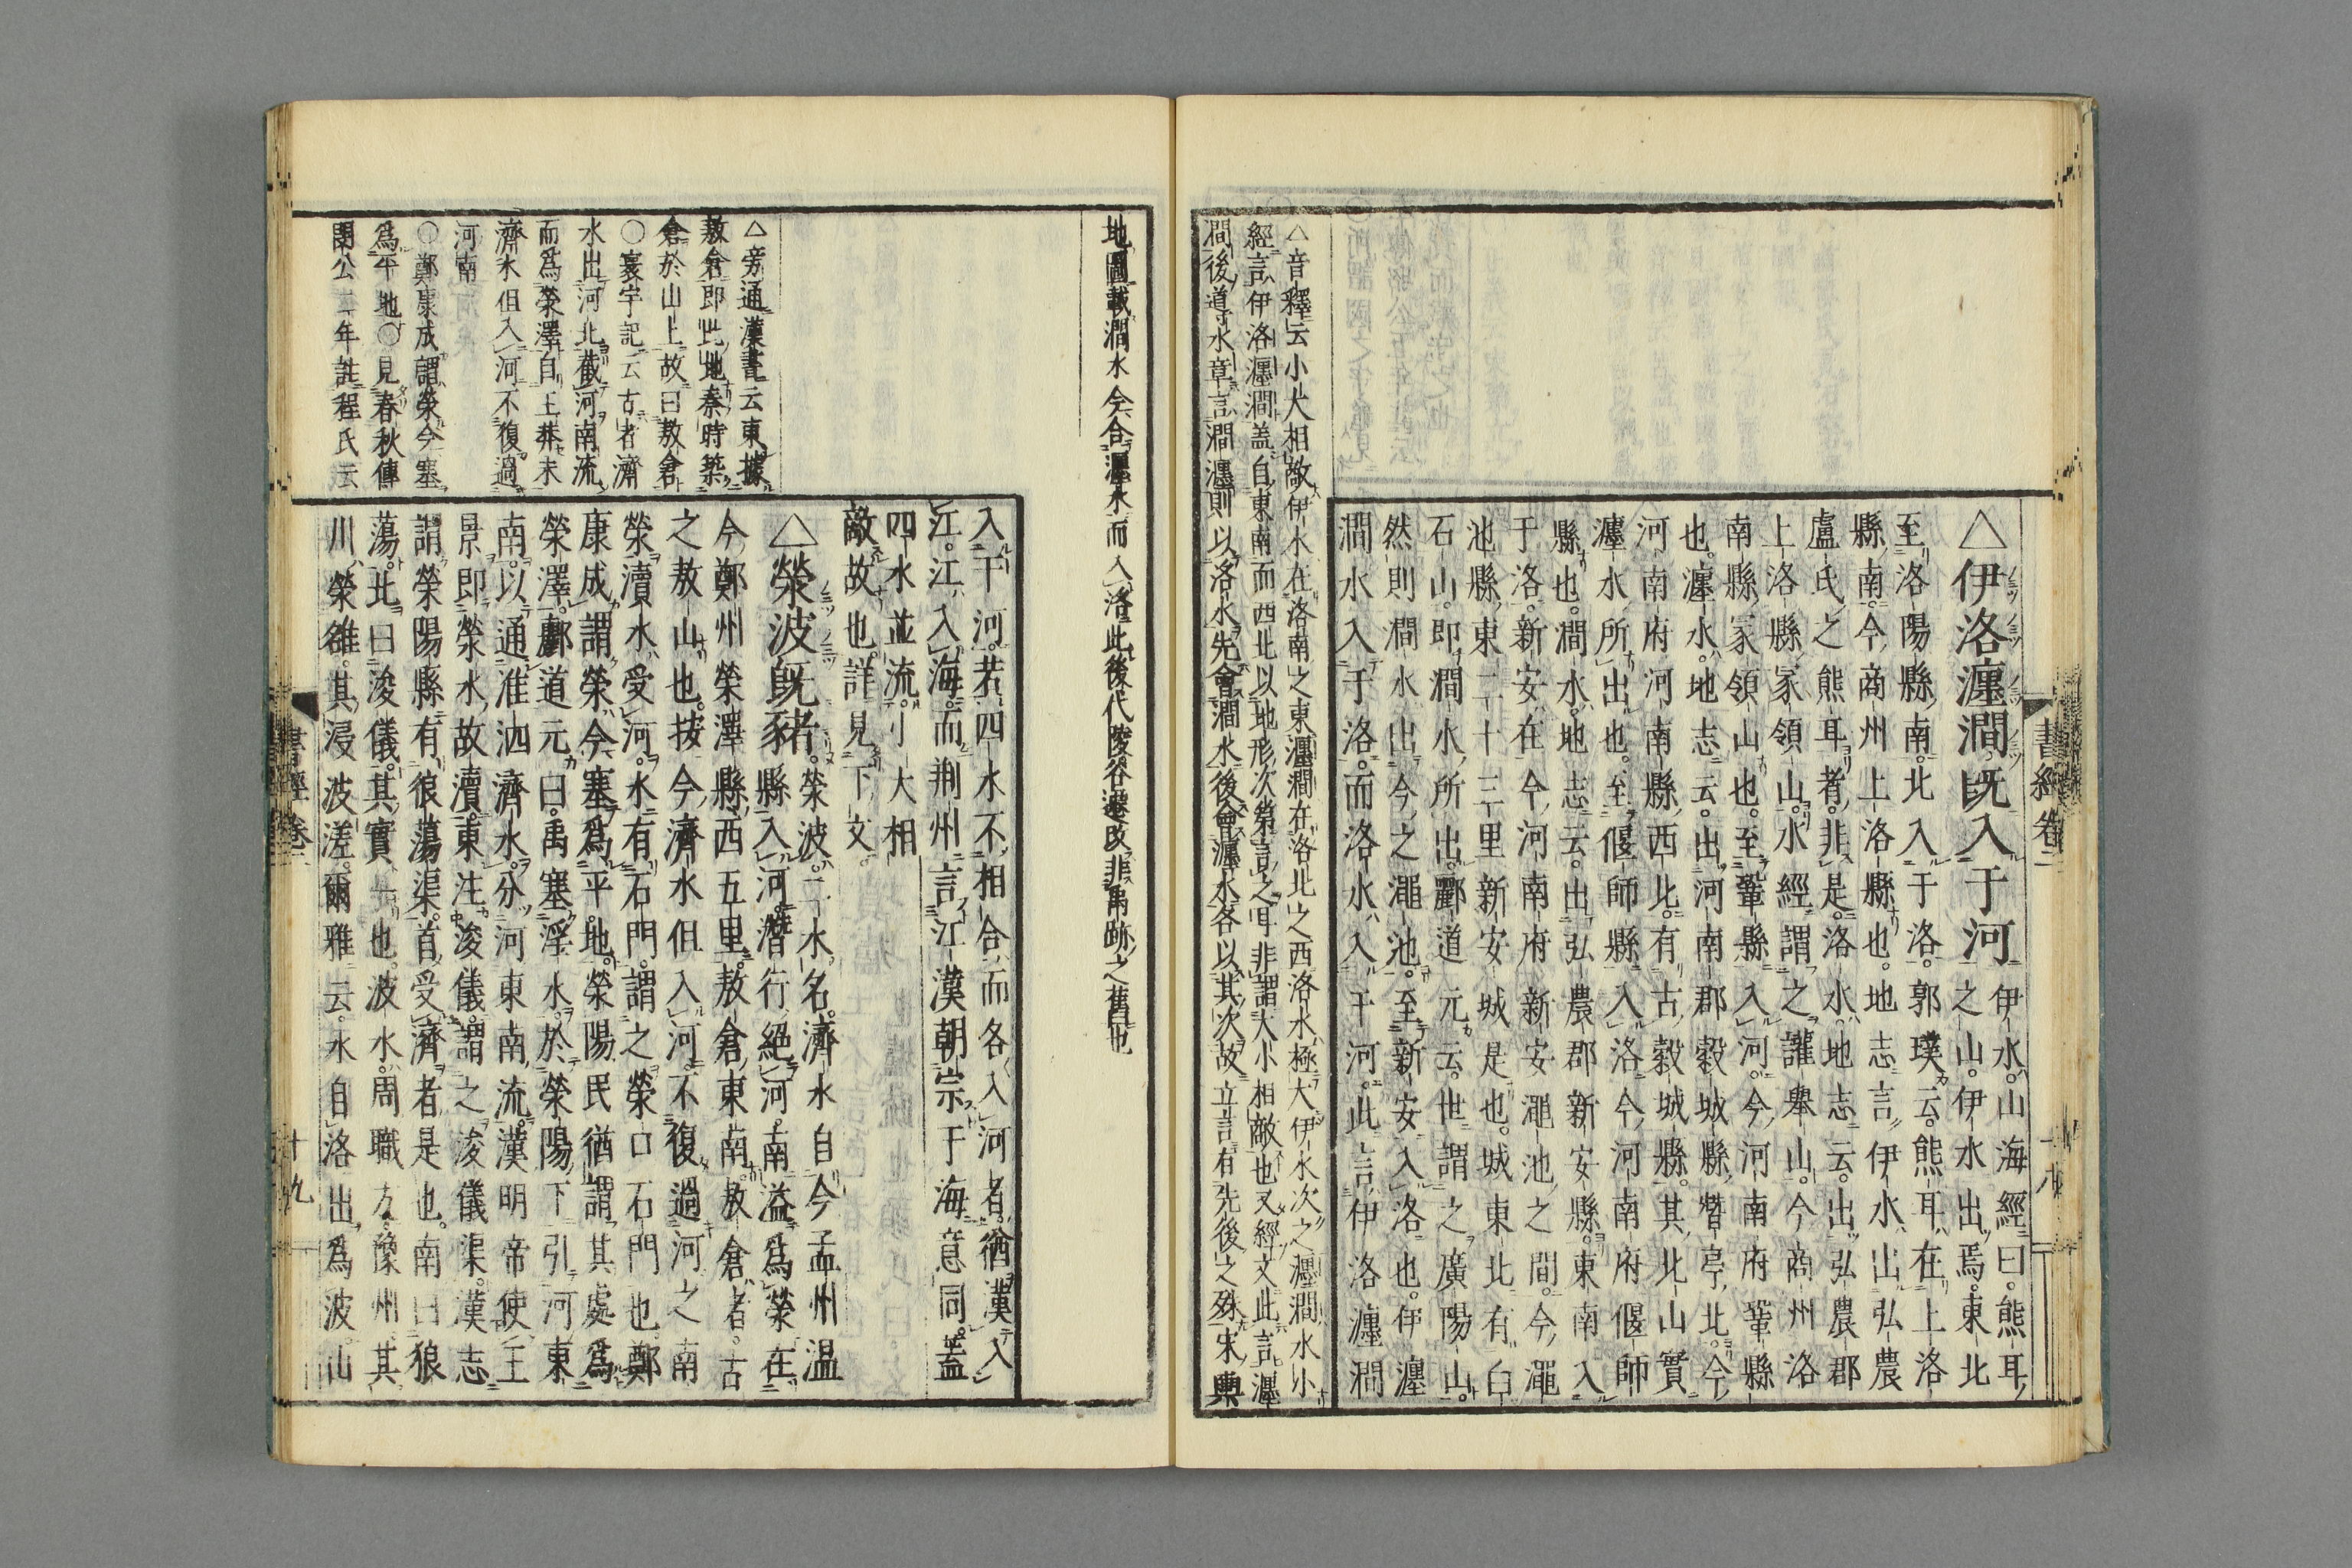 書經卷二
十八
△伊洛瀍澗既入于河
伊水。山海經曰。熊耳
之山。伊水出焉。東北
至洛陽縣南。北入于洛。郭璞云。熊耳在上洛
縣南。今商州上洛縣也。地志言伊水出弘農
盧氏之熊耳者。非是。洛水地志云。出弘農郡
上洛縣冢領山。水經謂之讙舉山。今商州洛
南縣冢領山也。至鞏縣入河。今河南府鞏縣
也。瀍水地志云。出河南郡穀城縣朁亭北。今
河南府河南縣西北。有古穀城縣。其北山實
瀍水所出也。至偃師縣入洛。今河南府偃師
縣也。澗水地志云。出弘農郡新安縣。東南入
于洛。新安在今河南府新安澠池之間。今澠
池縣東二十三里新安城是也。城東北有白
石山。即澗水所出。酈道元云。世謂之廣陽山。
然則澗水出今之澠池。至新安入洛也。伊瀍
澗水入于洛。而洛水入于河。此言伊洛瀍澗
△音釋云小大相敵伊水在洛南之東瀍澗在洛北之西洛水極大伊水次之瀍澗水小
經言伊洛瀍澗盖自東南而西北以地形次第言之耳非謂大小相敵也又經文此言瀍
澗後道水章言澗瀍則以洛水先會澗水後會瀍水各以其次故立言有先後之殊宋輿
地圖載澗水今合瀍水而入洛此後代陵谷遷改非禹跡之舊也
入于河。若四水不相合。而各入河者。猶漢入
江。江入海。而荆州言江漢朝宗于海意同。蓋
四水並流。小大相
敵故也。詳見下文。
△滎波既豬。
滎波。二水名。濟水自今孟州温
縣入河。潛行絕河。南溢爲滎。在
今鄭州滎澤縣西五里。敖倉東南。敖倉者。古
之敖山也。按今濟水但入河。不復過河之南
滎瀆水受河。水有石門。謂之滎口石門也。鄭
康成謂滎今塞爲平地。滎陽民猶謂其處爲
滎澤。酈道元曰。禹塞淫水。於滎陽下引河東
南。以通淮泗濟水。分河東南流。漢明帝使王
景即滎水故瀆。東注浚儀。謂之浚儀渠。漢志
謂滎陽縣有狼蕩渠。首受濟者是也。南曰狼
蕩。北曰浚儀。其實一也。波水。周職方。豫州其
川滎雒。其浸波溠。爾雅云。水自洛出爲波。山
△旁通漢書云東據
敖倉即此地秦時築
倉於山上故曰敖倉
○寰宇記云古者濟
水出河北截河南流
而爲滎澤自王莽末
濟水但入河不復過
河南
○鄭康成謂滎今塞
爲平地○見春秋傳
閔公二年註程氏云
書經卷二
十九